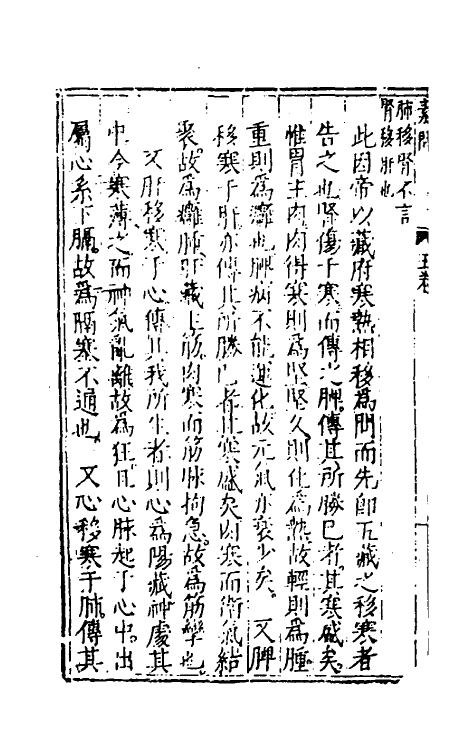 素問 五卷
肺移腎不言
腎移肝也
此因帝以藏府寒熱相移為問而先即五藏之移寒者
告之也腎傷于寒而傳之脾傳其所勝已者其寒盛矣
惟胃主肉肉得寒則為堅堅久則化為熱故輕則為腫
重則為癰也脾病不能運化故元氣亦衰少矣 又脾
移寒于肝亦傳其所勝已者其寒盛矣肉寒而衛氣結
聚故為癰腫肝藏主筋肉寒而筋脉拘急故為筋攣也
又肝移寒于心傳其我所生者則心為陽藏神處其
中今寒薄之而神氣亂離故為狂且心脉起于心中出
屬心系下膈故為膈寒不通也 又心移寒于肺傳其